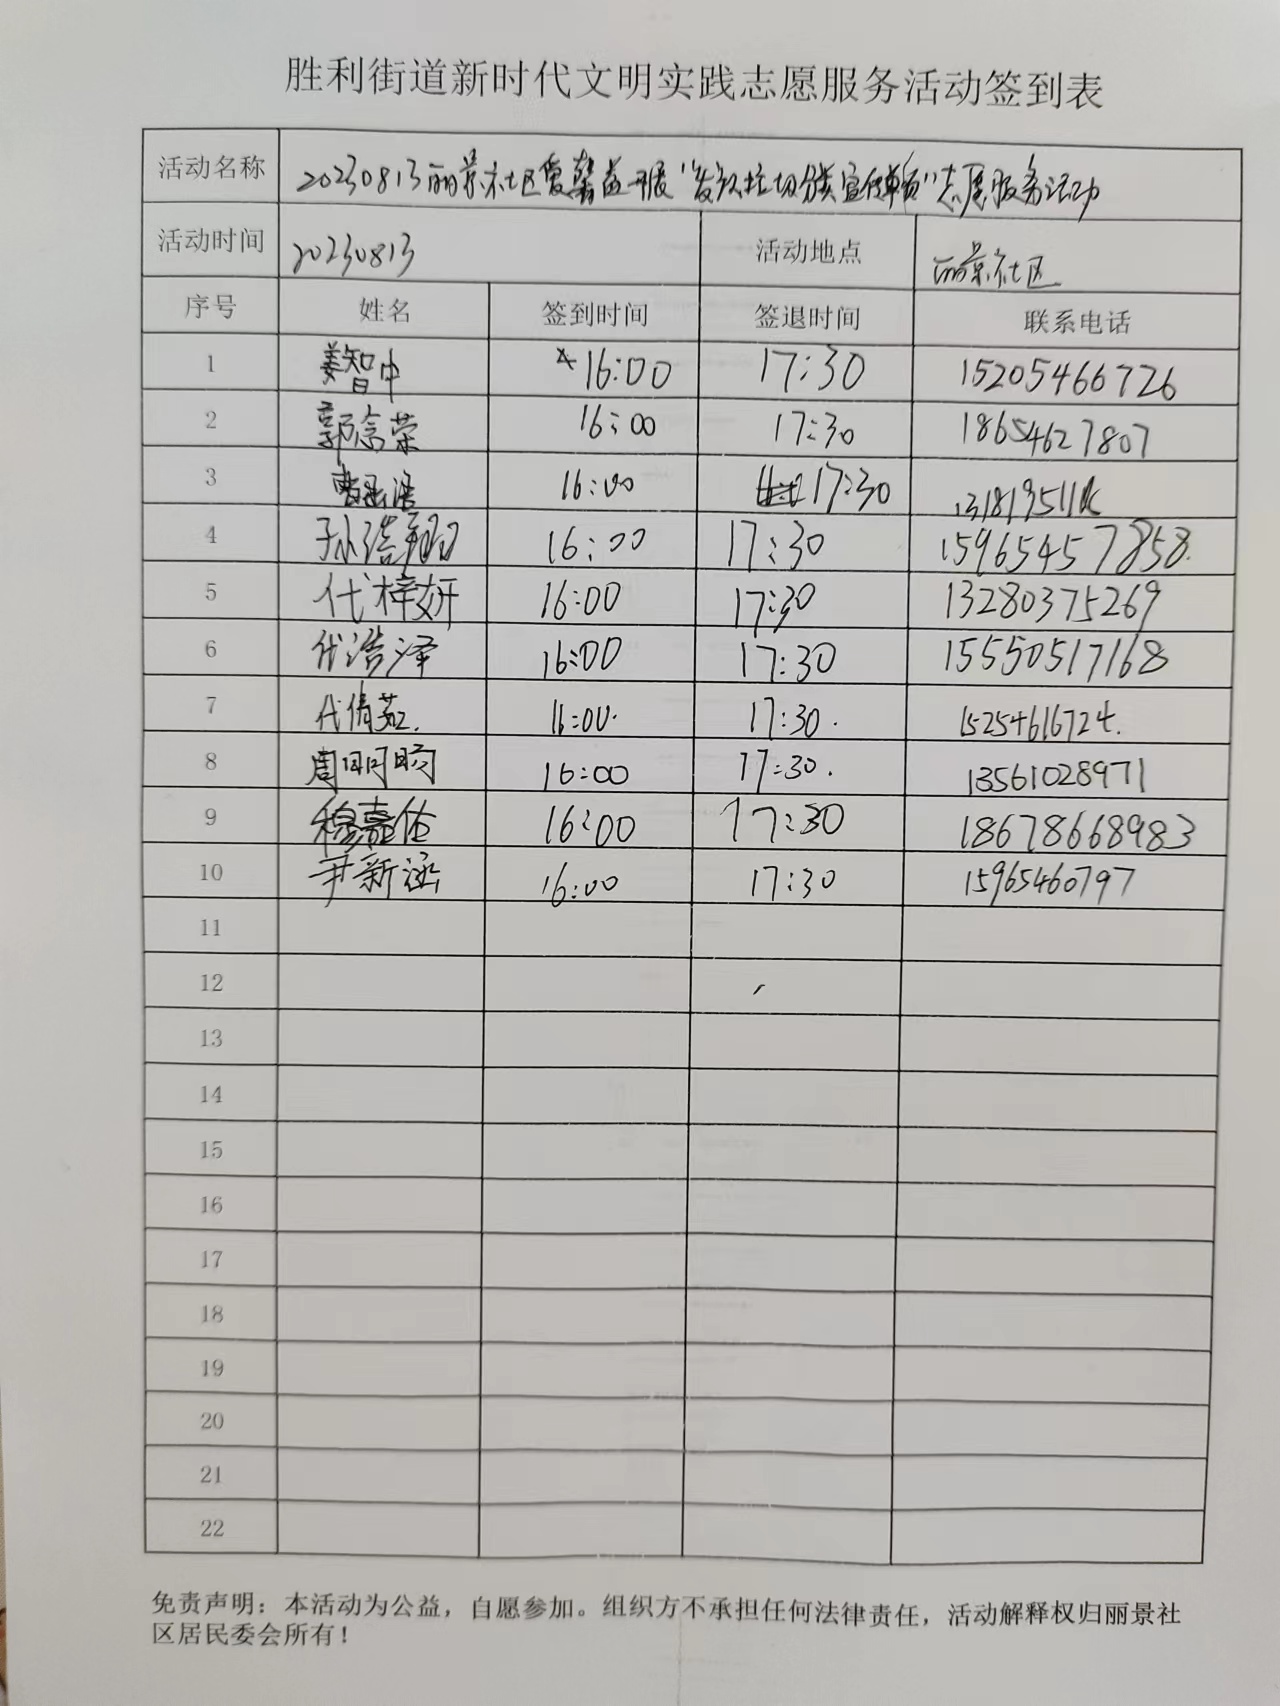 胜利街道新时代文明实践志愿服务活动签到表
活动名称 20230813丽景社区爱馨益开展"发放垃圾分类宣传单页"志愿服务活动
活动时间 20230813 活动地点 丽景社区
序号 姓名 签到时间 签退时间 联系电话
1 姜智中 16:00 17:30 15205466726
2 郭念荣 16:00 17:30 18654627807
3 16:00 17:30
4 孙浩翔 16:00 17:30 15965457858
5 代梓妍 16:00 17:30 13280375269
6 代浩泽 16:00 17:30 15550517168
7 代倩茹. 16:00. 17:30. 15254616724.
8 周明旸 16:00 17:30. 13561028971
9 穆嘉佑 16:00 17:30 18678668983
10 尹新涵 16:00 17:30 15965460797
11
12
13
14
15
16
17
18
19
20
21
22
免责声明：本活动为公益，自愿参加。组织方不承担任何法律责任，活动解释权归丽景社
区居民委会所有！